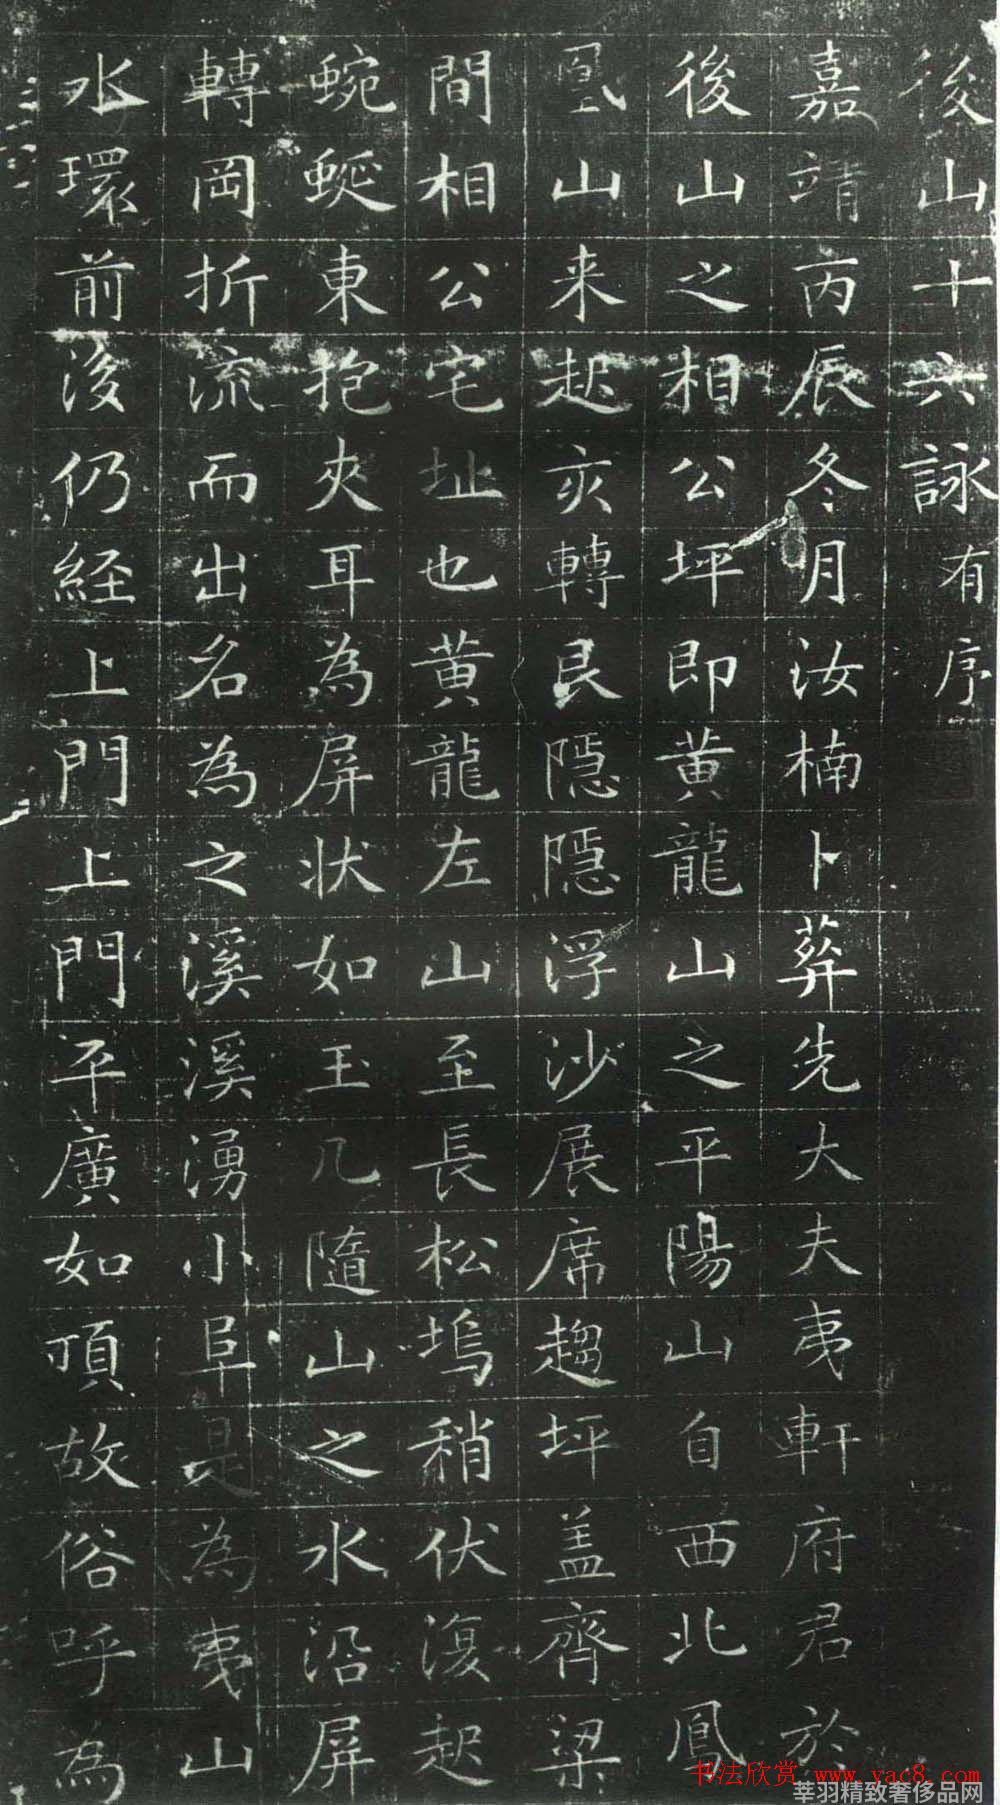 後山十六詠有序
嘉靖丙辰冬月汝楠卜葬先大夫夷軒府君於
後山之相公坪即黄龍山之平陽山自西北鳳
凰山来起亥轉艮隱隱浮沙展席趨坪盖齊梁
間相公宅址也黄龍左山至長松塢稍伏復起
蜿蜒東抱夾耳為屏狀如玉几隨山之水沿屏
轉岡折流而出名為之溪溪湧小阜是為夷山
水環前後仍経上門上門平廣如頂故俗呼為
书法欣赏 www.yac8.com
莘羽精致奢侈品网